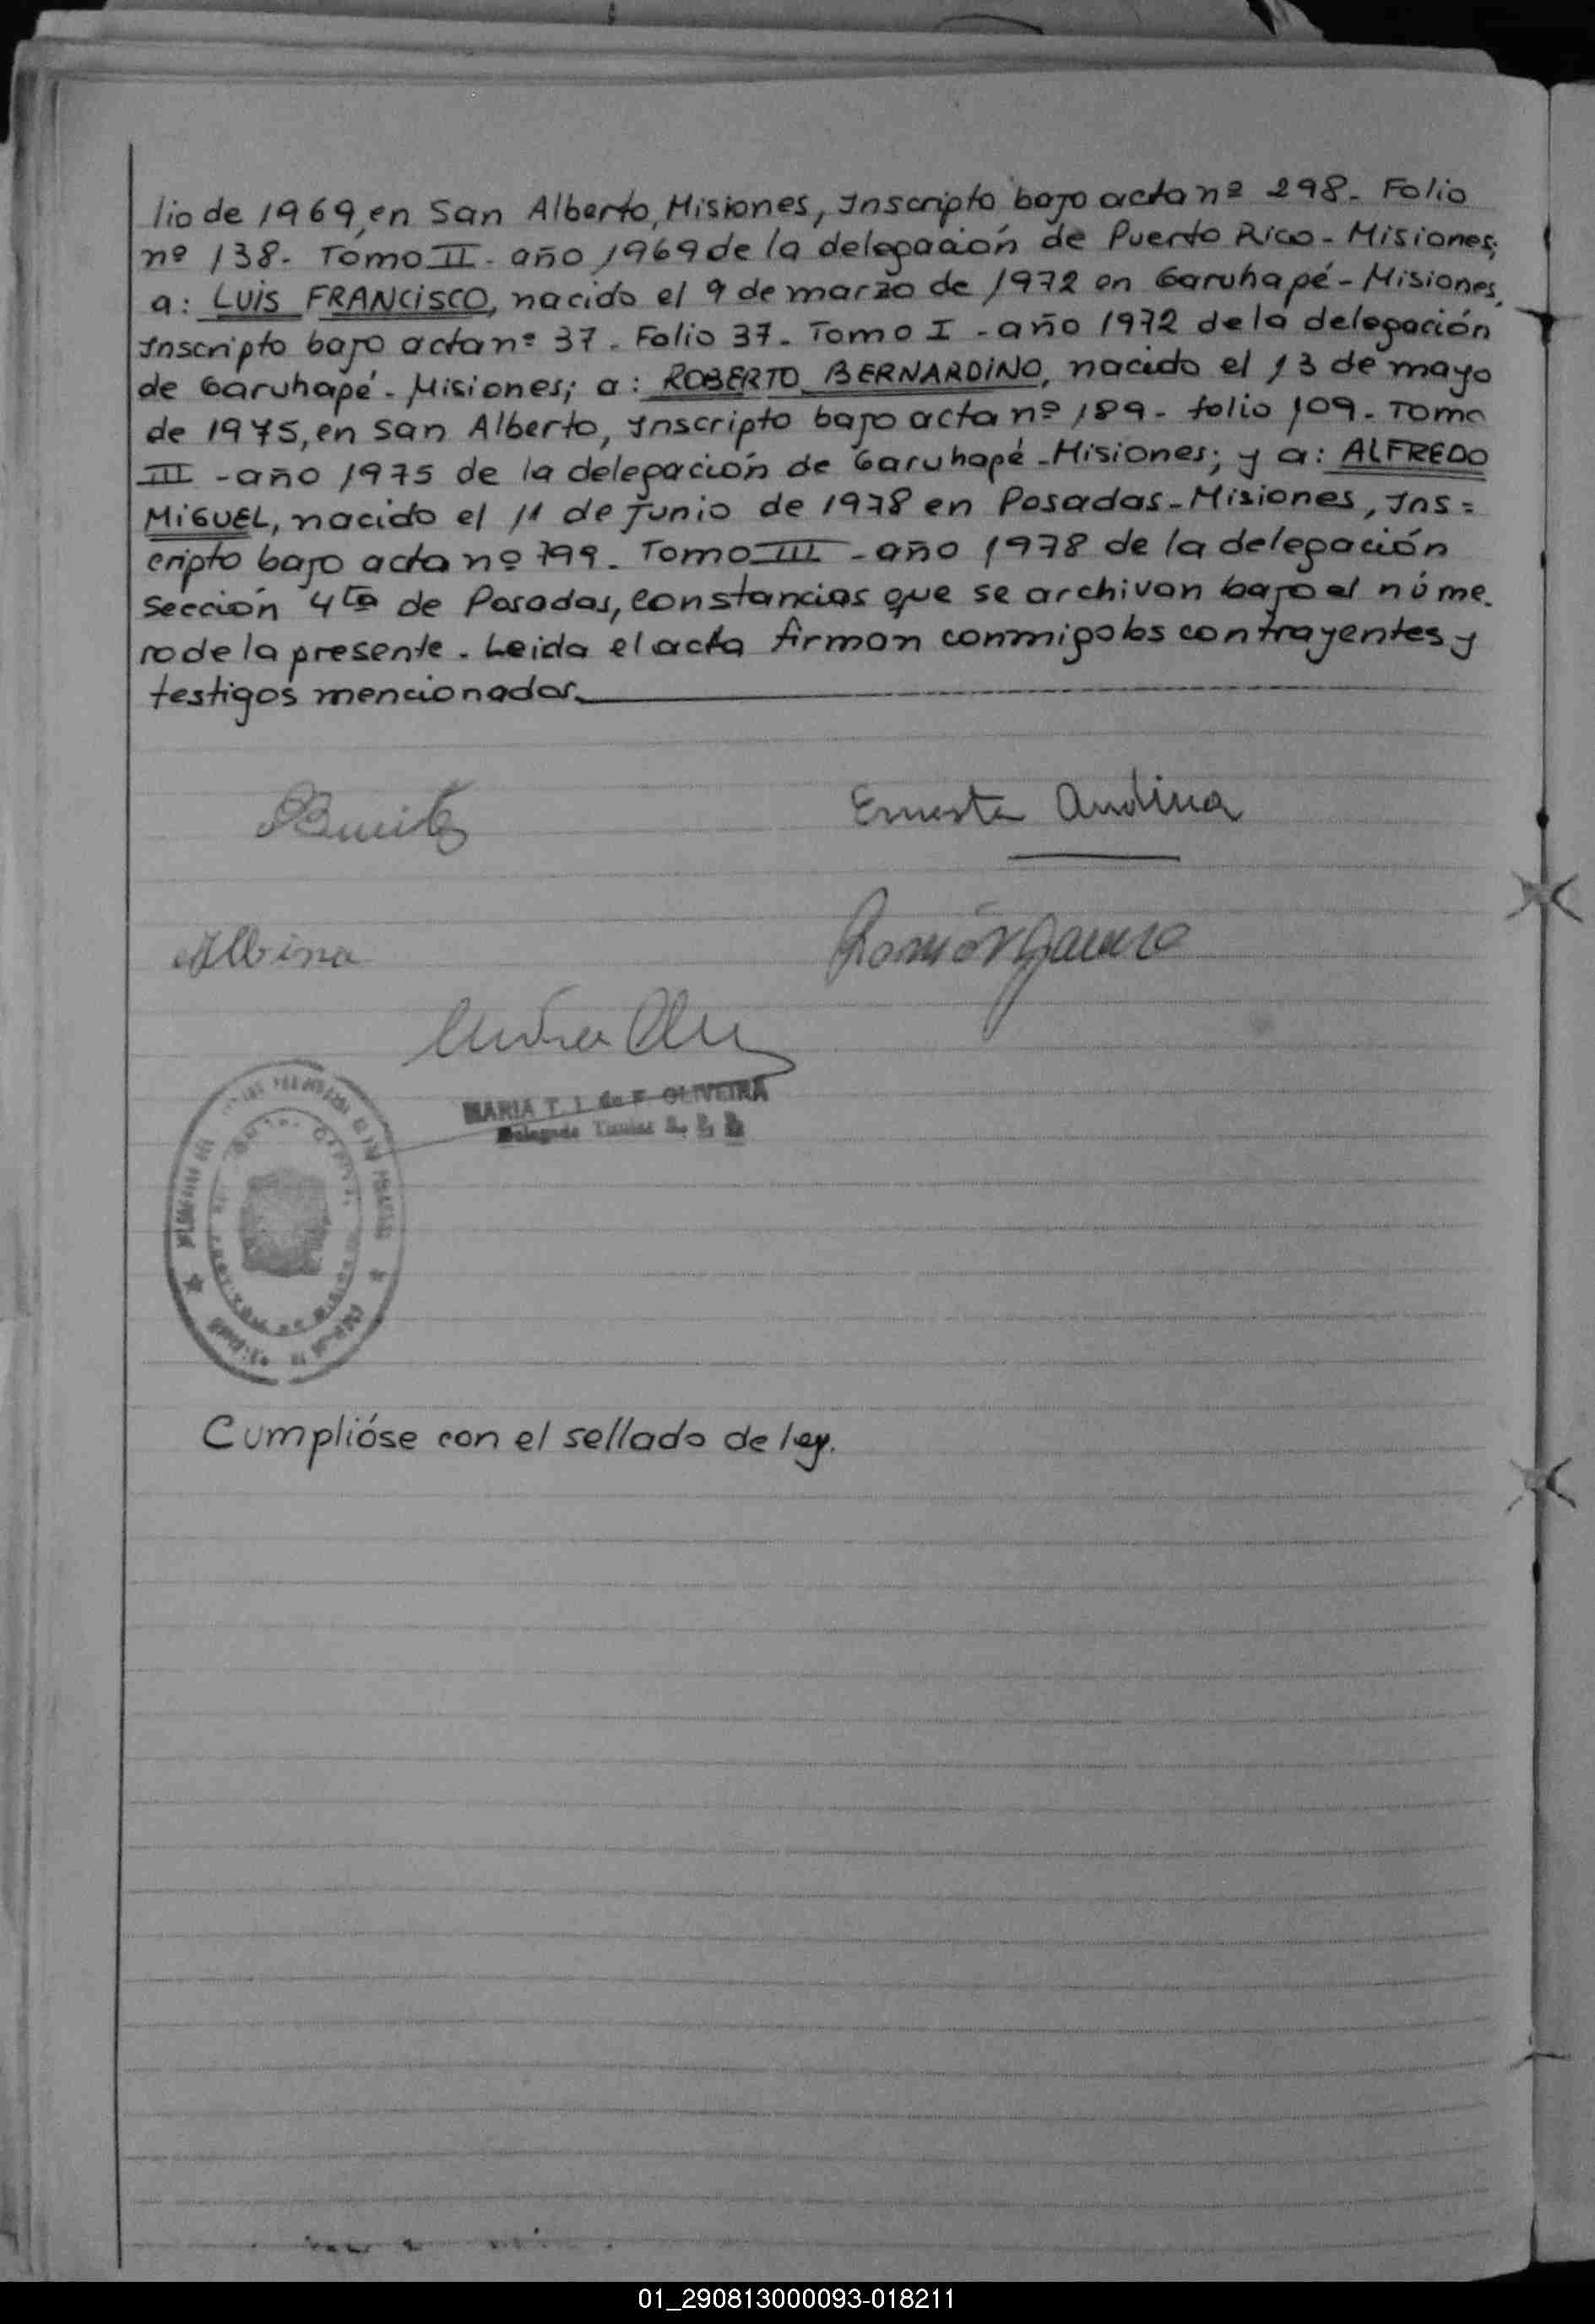 lio de 1969, en San Alberto, Misiones, Inscripto bajo acta nº 298. Folio
nº 138. Tomo II. año 1969 de la delegación de Puerto Rico - Misiones;
a: LUIS FRANCISCO, nacido el 9 de marzo de 1972 en Garuhapé - Misiones,
Inscripto bajo acta nº 37. Folio 37. Tomo I - año 1972 de la delegación
de Garuhapé - Misiones; a: ROBERTO BERNARDINO, nacido el 13 de mayo
de 1975, en San Alberto, Inscripto bajo acta nº 189. folio 109. Tomo
III - año 1975 de la delegación de Garuhapé - Misiones; y a: ALFREDO
MIGUEL, nacido el 11 de Junio de 1978 en Posadas - Misiones, Ins=
cripto bajo acta nº 799. Tomo III - año 1978 de la delegación
Sección 4ta de Posadas, constancias que se archivan bajo el núme.
ro de la presente. Leida el acta firman conmigo los contrayentes y
testigos mencionados.
Ernesta Andina
Albina
Ramón
MARIA T. I. de F. OLIVEIRA
Delegada Titular
Cumplióse con el sellado de ley.
01_290813000093-018211